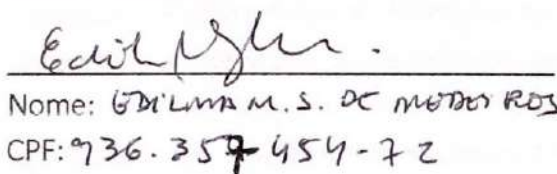 Nome: EDILMA M. S. DE MEDEIROS
CPF: 936.359 454-72